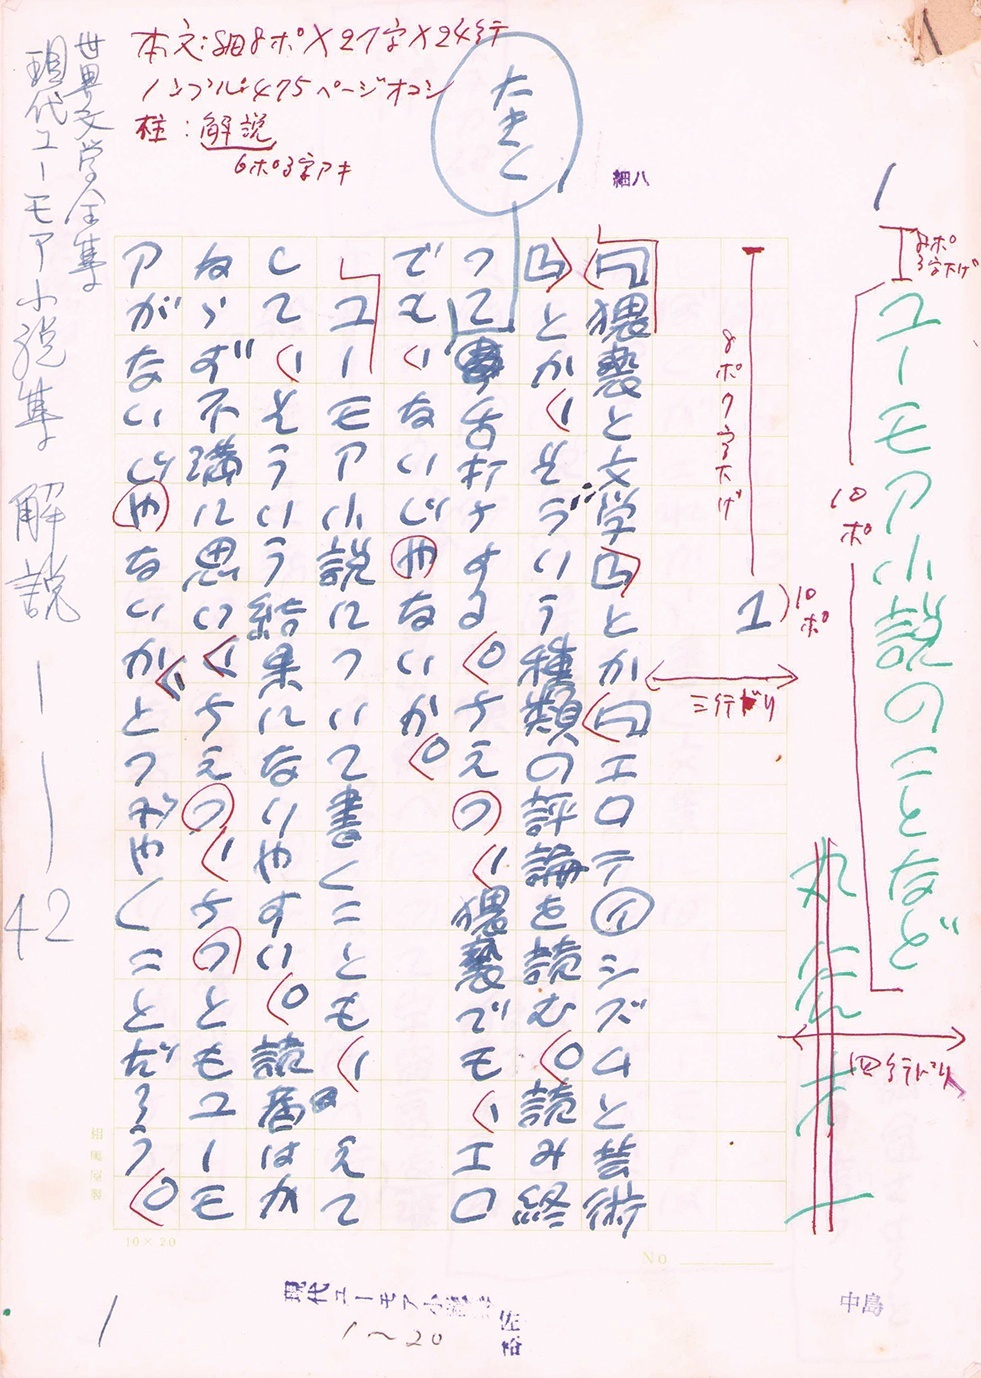 本文:8細8ポ×27字×24行
ノンブル:475ページオコシ
柱:解説
6ポ3字アキ
大きく
細八
1
8ポ
3字下げ
ユーモア小説のことなど
10ポ
丸谷才一
四行ドリ
8ポ7字下げ
1
10ポ
三行ドリ
『猥褻と文学』とか『エロティシズムと芸術
』とか、そういう種類の評論を読む。読み終
つて舌打ちする。ちえつ、猥褻でも、エロ
でも、ないじやないか。
ユーモア小説について書くことも、えて
して、そういう結果になりやすい。読者はか
ならず不満に思い、ちえつ、ちつともユーモ
アがないじやないか、とつぶやくことだろう。
世界文学全集
現代ユーモア小説集 解説 一 — 42
相馬屋製
10×20
No.
現代ユーモア小説
佐裕
1〜20
中島
1